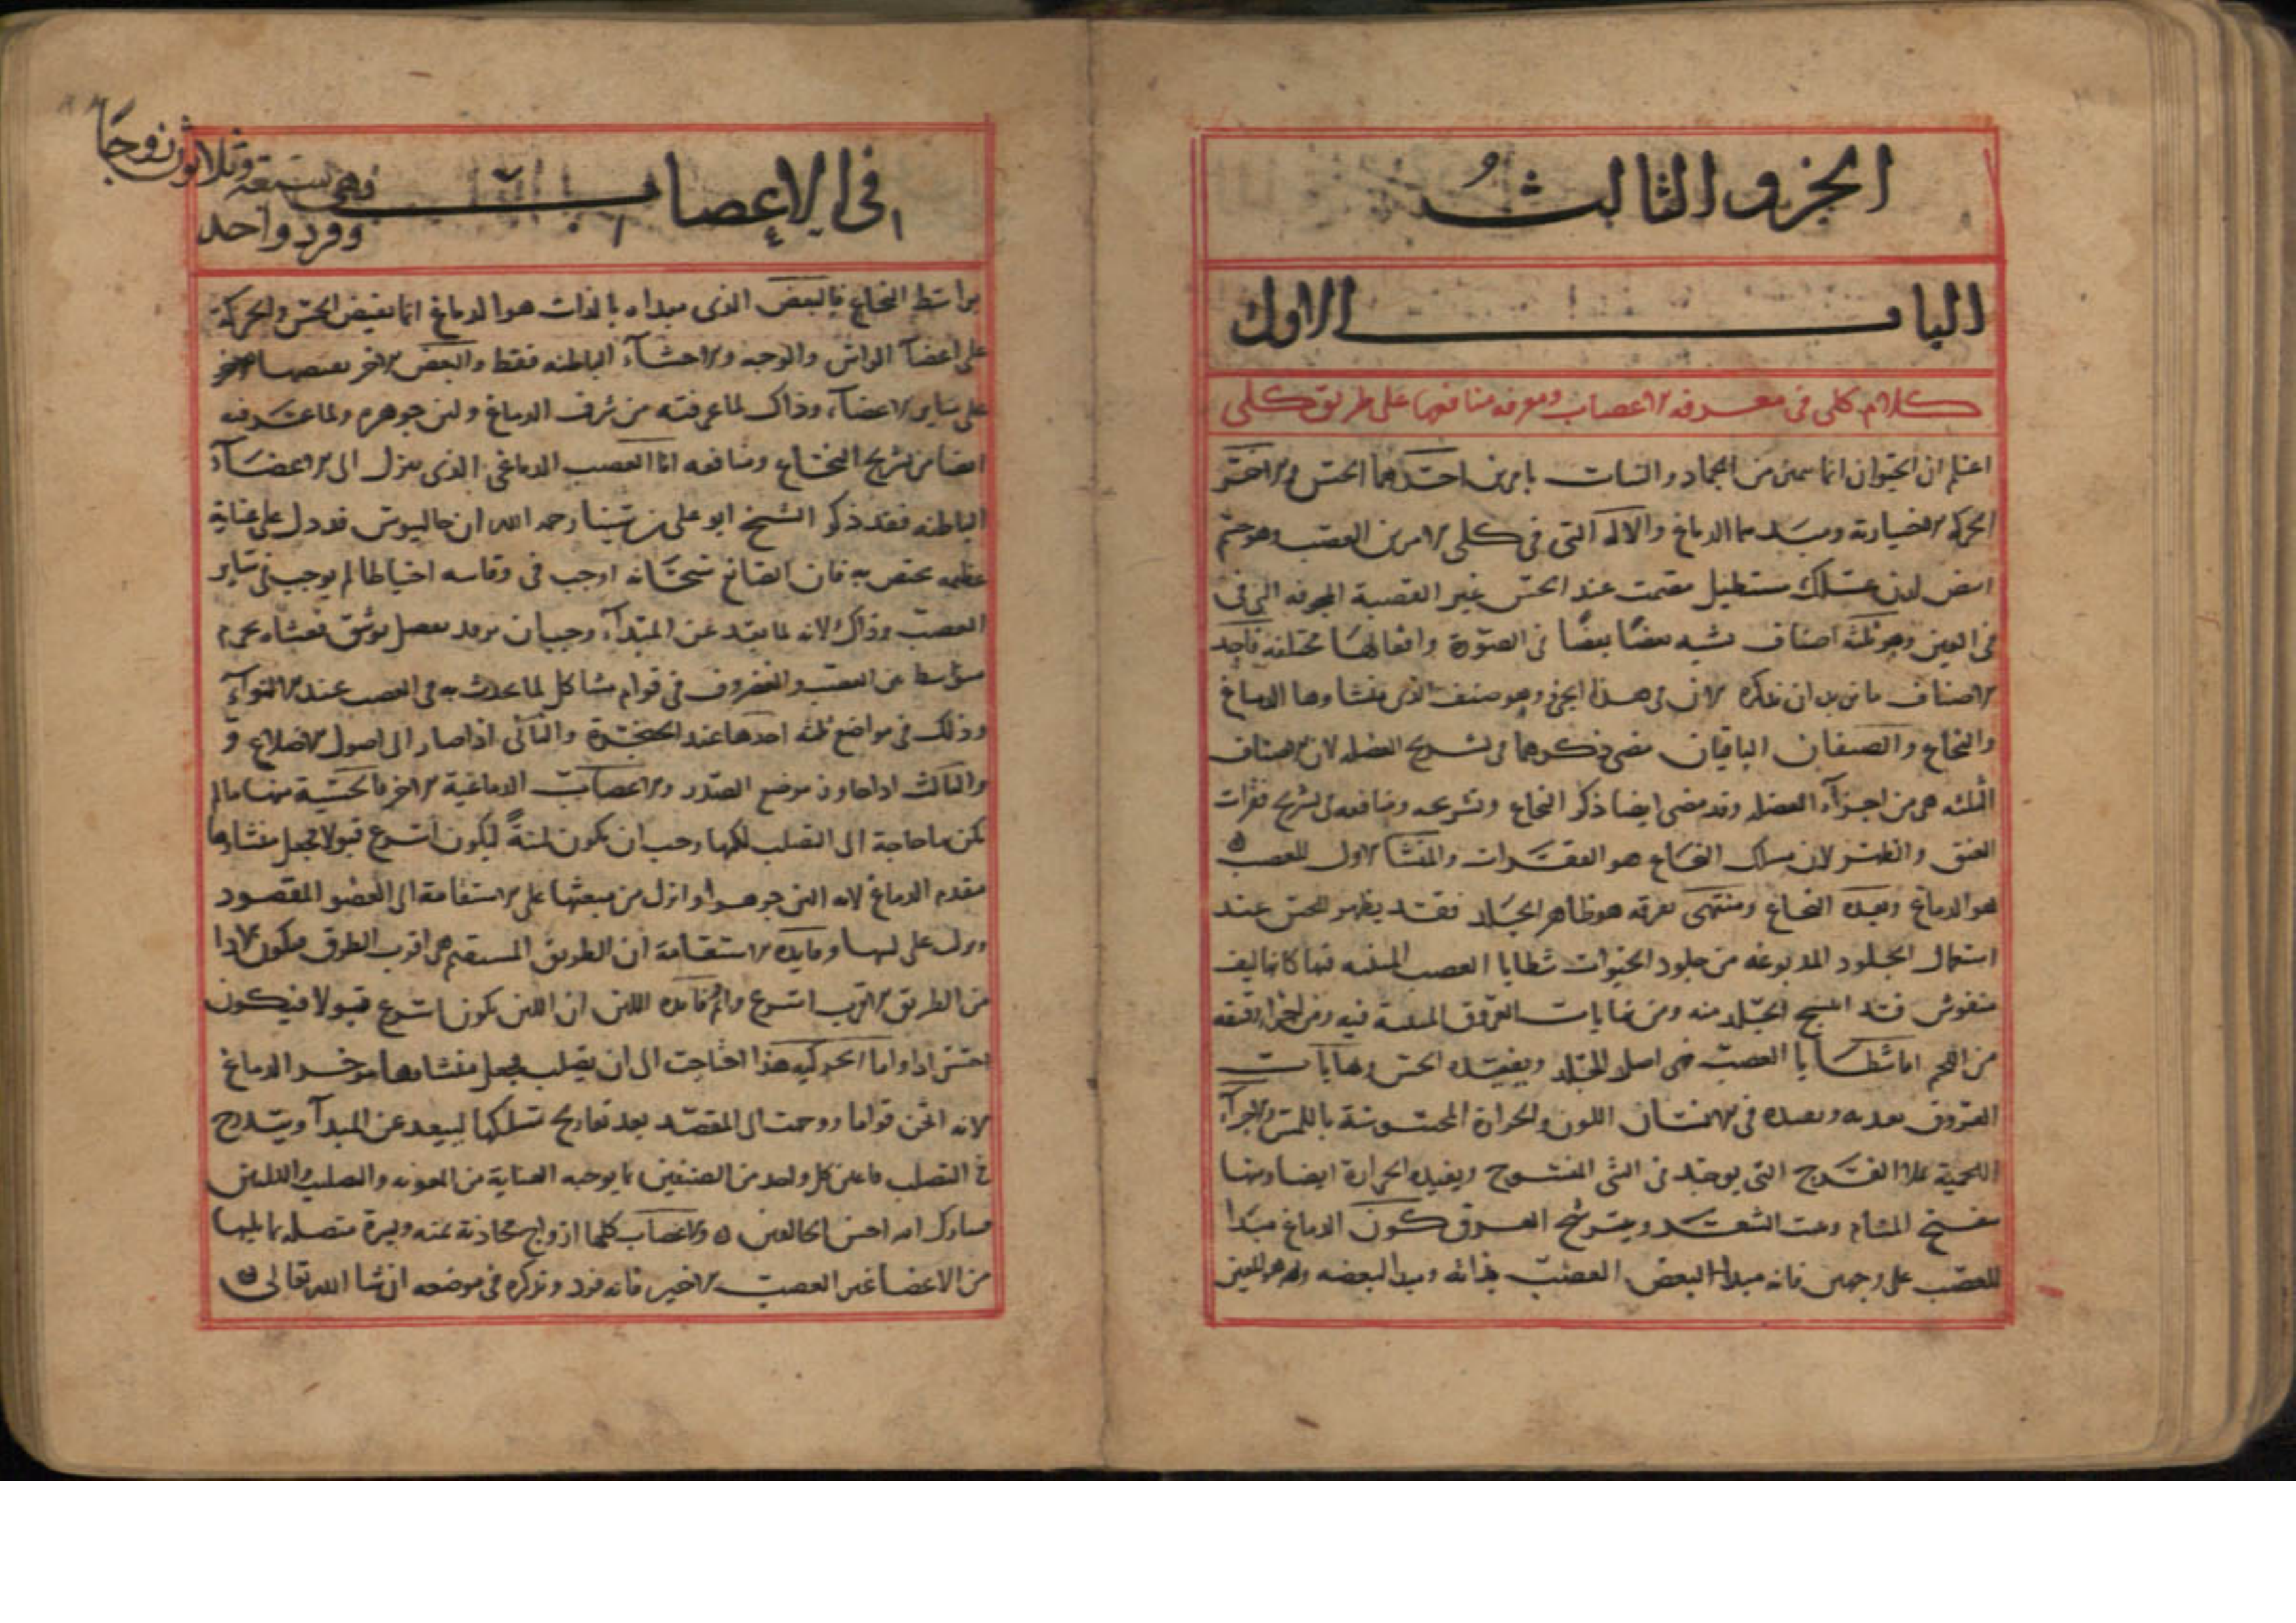 الجزو الثالث
الباب الاول
كلام كلى فى معرفه الاعصاب ومعرفه منافعها على طريق كلى
اعلم ان الحيوان انما سمى من الجماد والنبات بامرين احدهما الحس والاخر
الحركه الاختيارية ومبدأهما الدماغ والاله التى فى كلى الامرين العصب وهو جسم
ابيض لدن علك مستطيل مصمت عند الحس غير العصبة المجوفه التى فى
فى العين وهو ثلثه اصناف يشبه بعضها بعضا فى الصورة وافعالها مختلفه فاحد
الاصناف ما نريد ان نذكره الان فى هذا الجزو وهو صنف الذى منشاوها الدماغ
والنخاع والصنفان الباقيان مضى ذكرهما فى تشريح العضله لان الاصناف
الثلثه هى من اجزآء العضله وقد مضى ايضا ذكر النخاع وتشريحه ومنافعه فى تشريح فقرات
العنق والظهر لان مسلك النخاع هو الفقرات والمنشا الاول للعصب
هو الدماغ وبعده النخاع ومنتهى تفرقه هو ظاهر الجلد فقد يظهر للحس عند
استعمال الجلود المدبوغه من جلود الحيوانات شظايا العصب المنبثه فيها كانها ليف
منفوش فقد انتسج الجلد منه ومن نهايات العروق المنبثة فيه ومن اجزا رقيقه
من اللحم اما شظايا العصب فهى اصل للجلد ويفيده الحس ونهايات
العروق تغذيه وتفيده فى الانسان اللون والحرارة المحسوسة باللمس والاجزآء
اللحمية تملا الفرج التى يوجد فى الشى المنسوج ويفيده الحرارة ايضا ومنها
تنفتح المسام ومنبت الشعر ويترشح العرق كون الدماغ مبدا
للعصب على وجهين فانه مبدا لبعض العصب بذاته ومبدا لبعضه
فى الاعصاب فهى سبعة وثلاثون زوجا
وفرد واحد
بواسطه النخاع فالبعض الذى مبداه بالذات هو الدماغ انما يفيض الحس والحركة
على اعضآ الراس والوجه والاحشآء الباطنه فقط والبعض الاخر
على ساير الاعضآء وذاك لما عرفته من شرف الدماغ ولين جوهره ولما عرفته
ايضا من تشريح النخاع ومنافعه اما العصب الدماغى الذى ينزل الى الاعضآء
الباطنه فقد ذكر الشيخ ابو على بن سينا رحمه الله ان جالينوس قد دل على عناية
عظيمه تختص به فان الصانع سبحانه اوجب فى وقايته احتياطا لم يوجب فى ساير
العصب وذاك لانه لما بعد عن المبتدآء وجب ان يرفد بفضل توثيق فغشاه بجرم
متوسط بين العصب والغضروف فى قوام مشاكل لما يحدث به فى العصب عند الالتوآء
وذلك فى مواضع ثلثه احدها عند الحنجرة والثانى اذا صار الى اصول الاضلاع و
والثالث اذا جاوز موضع الصدر والاعصاب الدماغية الاخر فالحسية منها ما لم
يكن بها حاجة الى التصلب لكنها وجب ان يكون لينةً ليكون اسرع قبولا فجعل منشاوها
مقدم الدماغ لانه الين جوهرا وانزل من مبعثها على الاستقامة الى العضو المقصود
على لينها وفايده الاستقامة ان الطريق المستقيم هى اقرب الطرق فيكون
من الطريق الاقرب اسرع وفايده اللين ان اللين يكون اسرع قبولا فيكون
احس ادا واما الحركيه هذا احتاجت الى ان يصلب فجعل منشاها موخر الدماغ
لانه اثخن قواما ووجهت الى المقصد بعد تعاريج تسلكها لتبعد عن المبدآ ويتدرج
فى التصلب كل واحد من الصنفين بما يوجبه العناية من المعونه والصلب واللين
فتبارك الله احسن الخالقين والاعصاب كلها ازواج متحاذية يمنه ويسرة متصله بما يليها
من الاعضا غير العصب الاخير فانه فرد ونذكره فى موضعه ان شا الله تعالى